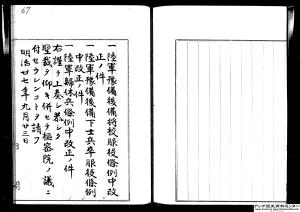 67
一陸軍豫備後備將校服役條例中改
正ノ件
一陸軍豫備後備下士兵卒服役條例
中改正ノ件
一陸軍歸休兵條例中改正ノ件
右謹テ上奏シ恭シク
聖裁ヲ仰キ併セテ樞密院ノ議ニ
付セラレンコトヲ請フ
明治廿七年九月廿三日
内閣
アジア歴史資料センター